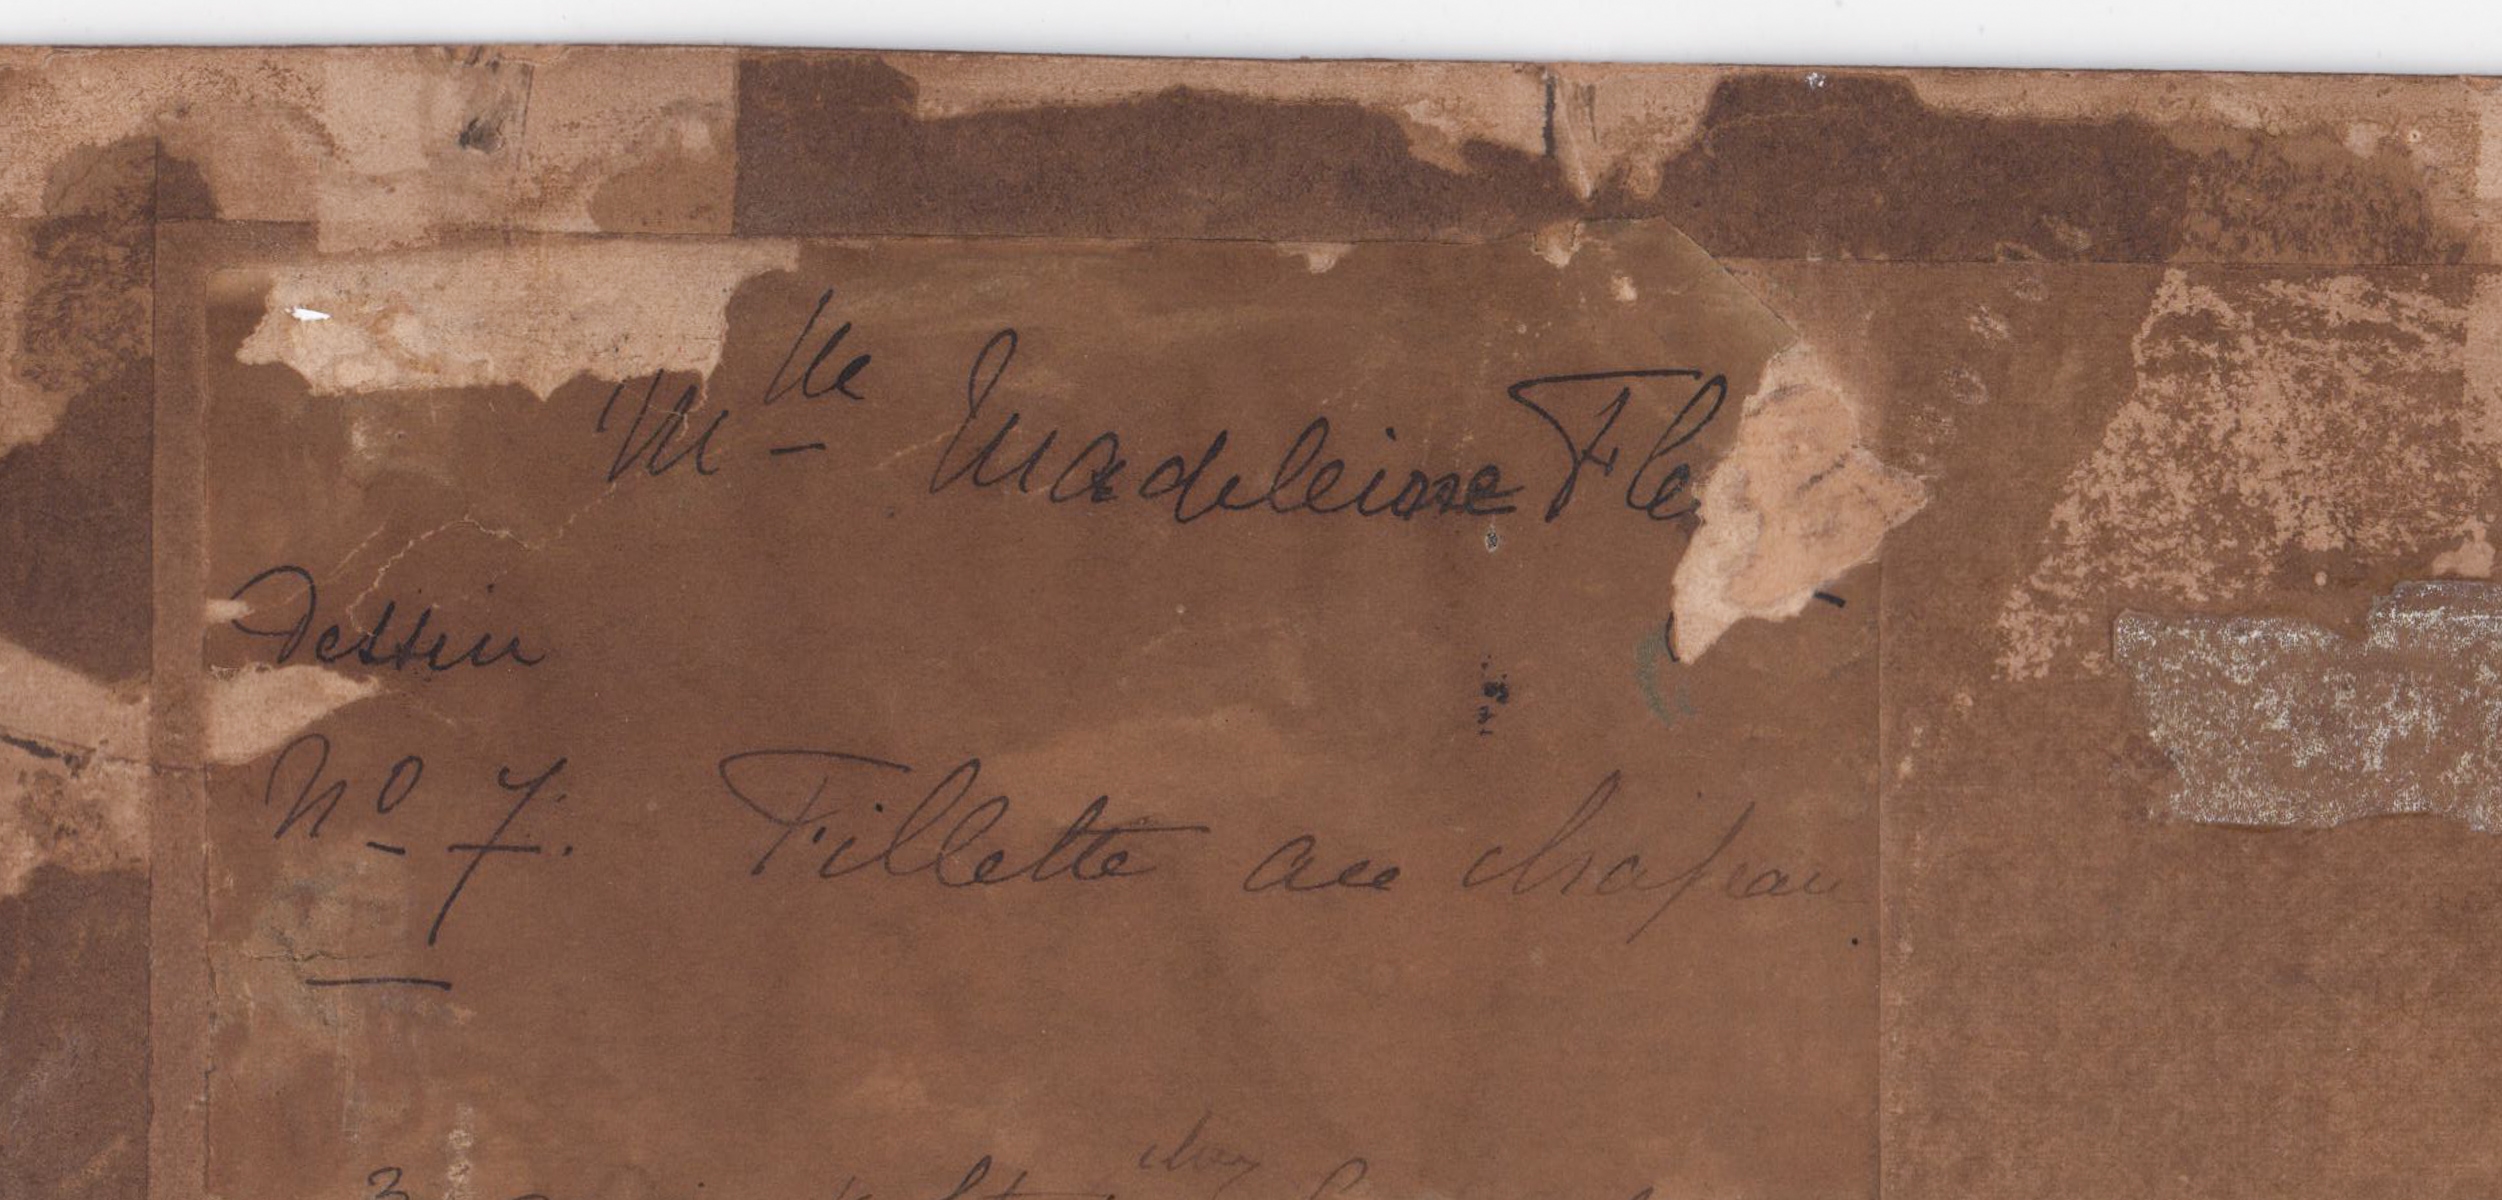 Mlle Madeleine Fle
Dessin
No 7. Fillette au chapeau
chez
3